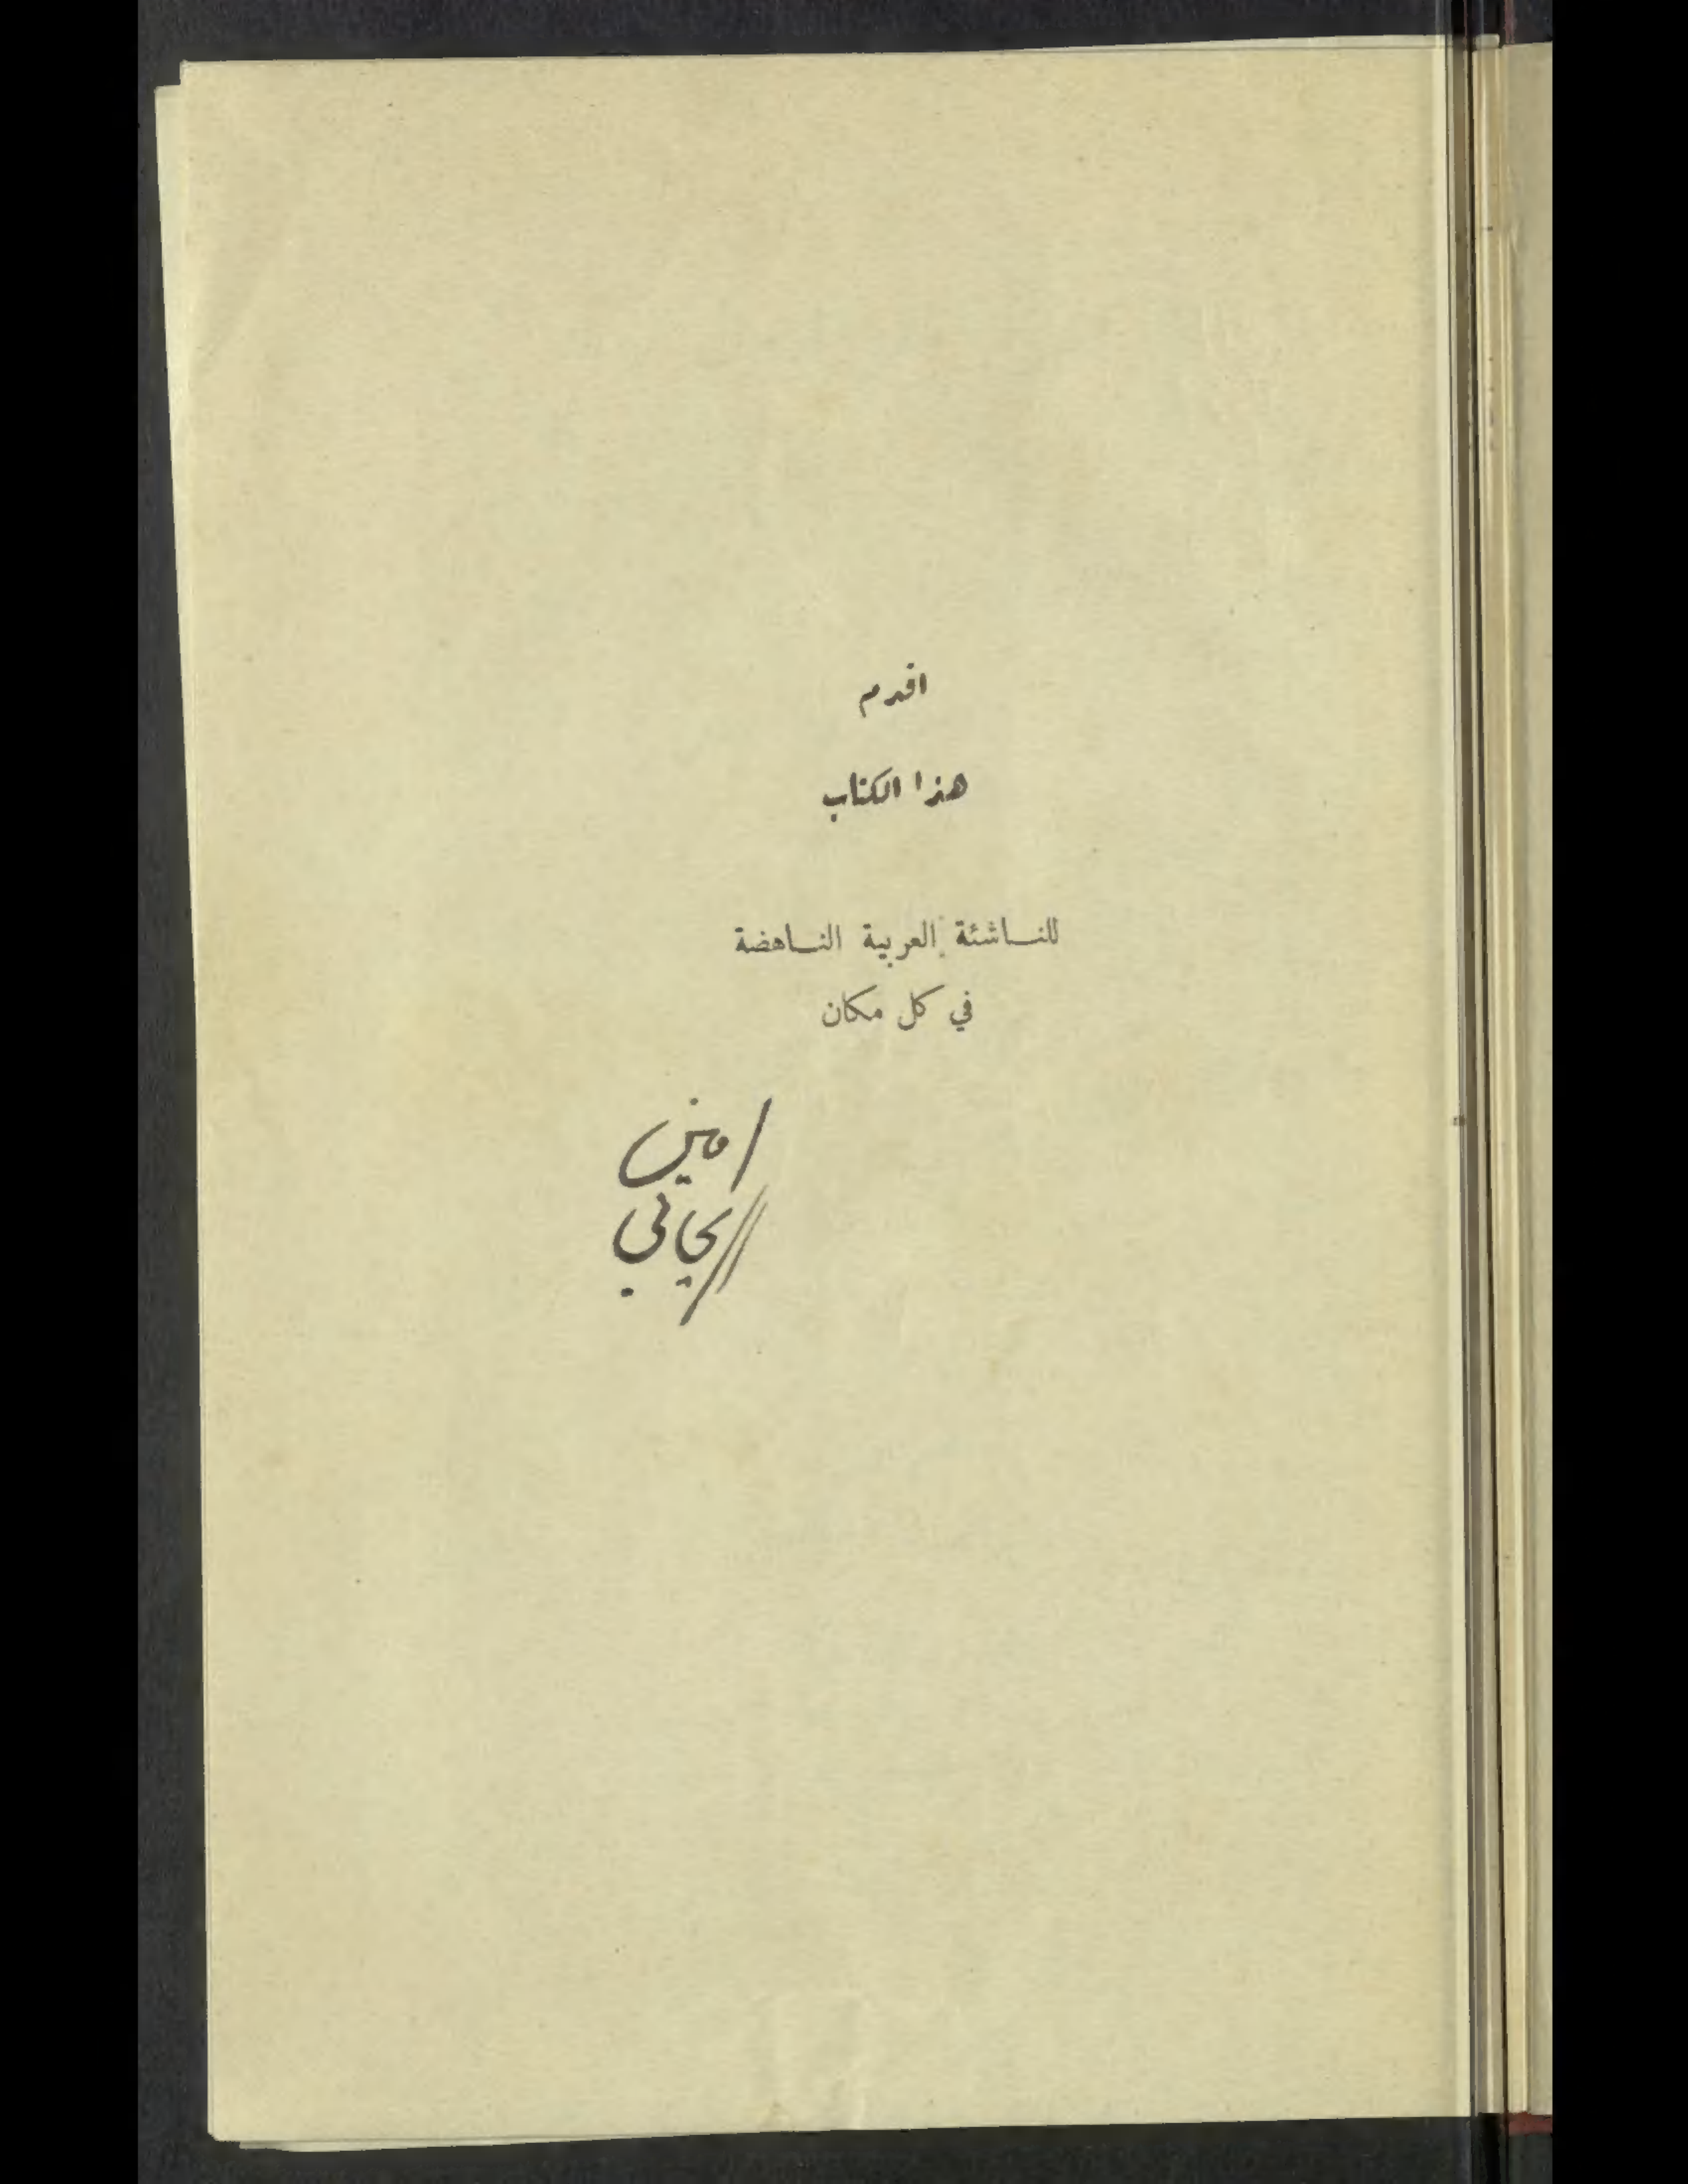 اقدم
هذا الكتاب
للناشئة العربية الناهضة
في كل مكان
امين
الريحاني